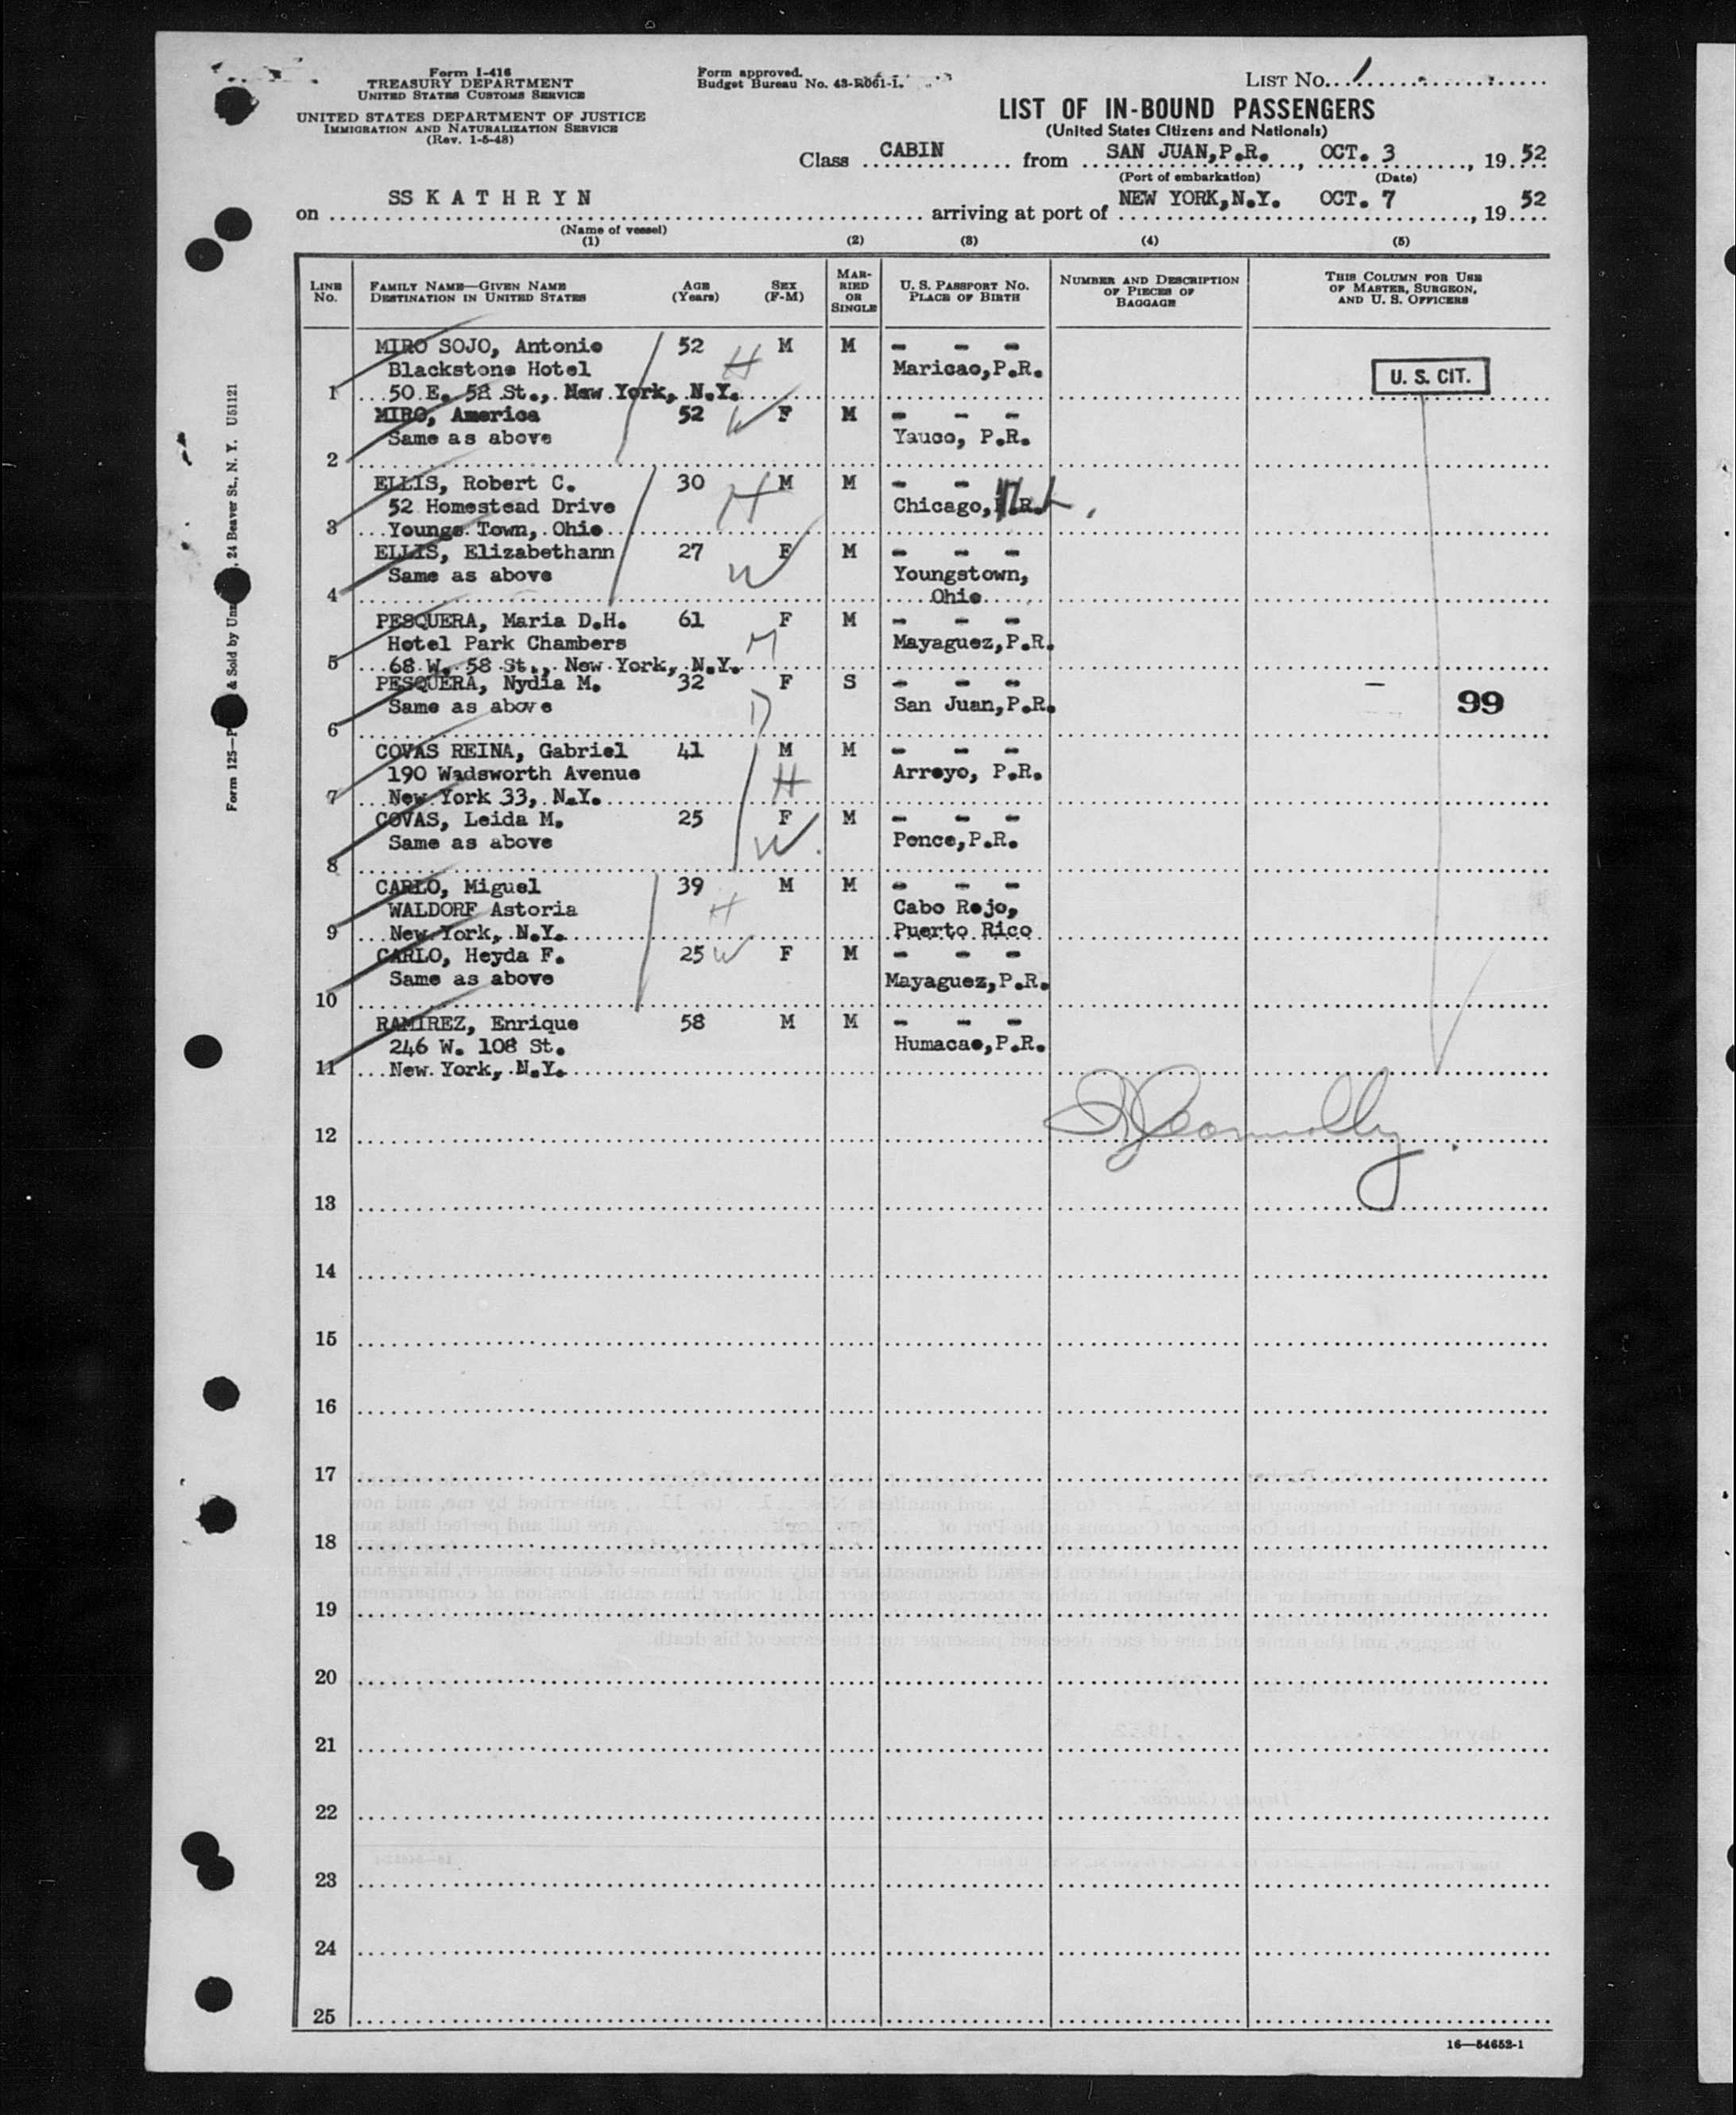 Form I-416
TREASURY DEPARTMENT
UNITED STATES CUSTOMS SERVICE
UNITED STATES DEPARTMENT OF JUSTICE
IMMIGRATION AND NATURALIZATION SERVICE
(Rev. 1-5-48)
Form approved.
Budget Bureau No. 43-R061-1.
LIST No. 1
LIST OF IN-BOUND PASSENGERS
(United States Citizens and Nationals)
Class CABIN from SAN JUAN, P.R., OCT. 3, 19 52
(Port of embarkation) (Date)
on SS K A T H R Y N arriving at port of NEW YORK, N.Y. OCT. 7, 19 52
(Name of vessel)
(1) (2) (3) (4) (5)
LINE No. FAMILY NAME—GIVEN NAME DESTINATION IN UNITED STATES AGE (Years) SEX (F-M) MARRIED OR SINGLE U. S. PASSPORT NO. PLACE OF BIRTH NUMBER AND DESCRIPTION OF PIECES OF BAGGAGE THIS COLUMN FOR USE OF MASTER, SURGEON, AND U. S. OFFICERS
MIRO SOJO, Antonio 52 M M - - -
Blackstone Hotel H Maricao, P.R. U. S. CIT.
1 50 E. 58 St., New York, N.Y.
MIRO, America 52 W F M - - -
Same as above Yauco, P.R.
2
ELLIS, Robert C. 30 H M M - -
52 Homestead Drive Chicago,
3 Youngs Town, Ohio
ELLIS, Elizabethann 27 F M - - -
Same as above W Youngstown,
4 Ohio
PESQUERA, Maria D.H. 61 F M - - -
Hotel Park Chambers M Mayaguez, P.R.
5 68 W. 58 St., New York, N.Y.
PESQUERA, Nydia M. 32 F S - - -
Same as above D San Juan, P.R. 99
6
COVAS REINA, Gabriel 41 M M - - -
190 Wadsworth Avenue H Arroyo, P.R.
7 New York 33, N.Y.
COVAS, Leida M. 25 F M - - -
Same as above W. Ponce, P.R.
8
CARLO, Miguel 39 M M - - -
WALDORF Astoria H Cabo Rojo,
9 New York, N.Y. Puerto Rico
CARLO, Heyda F. 25 W F M - - -
Same as above Mayaguez, P.R.
10
RAMIREZ, Enrique 58 M M - - -
246 W. 108 St. Humacao, P.R.
11 New York, N.Y.
12
13
14
15
16
17
18
19
20
21
22
23
24
25
16—54652-1
Form 125—P & Sold by Unz , 24 Beaver St., N. Y. U51121